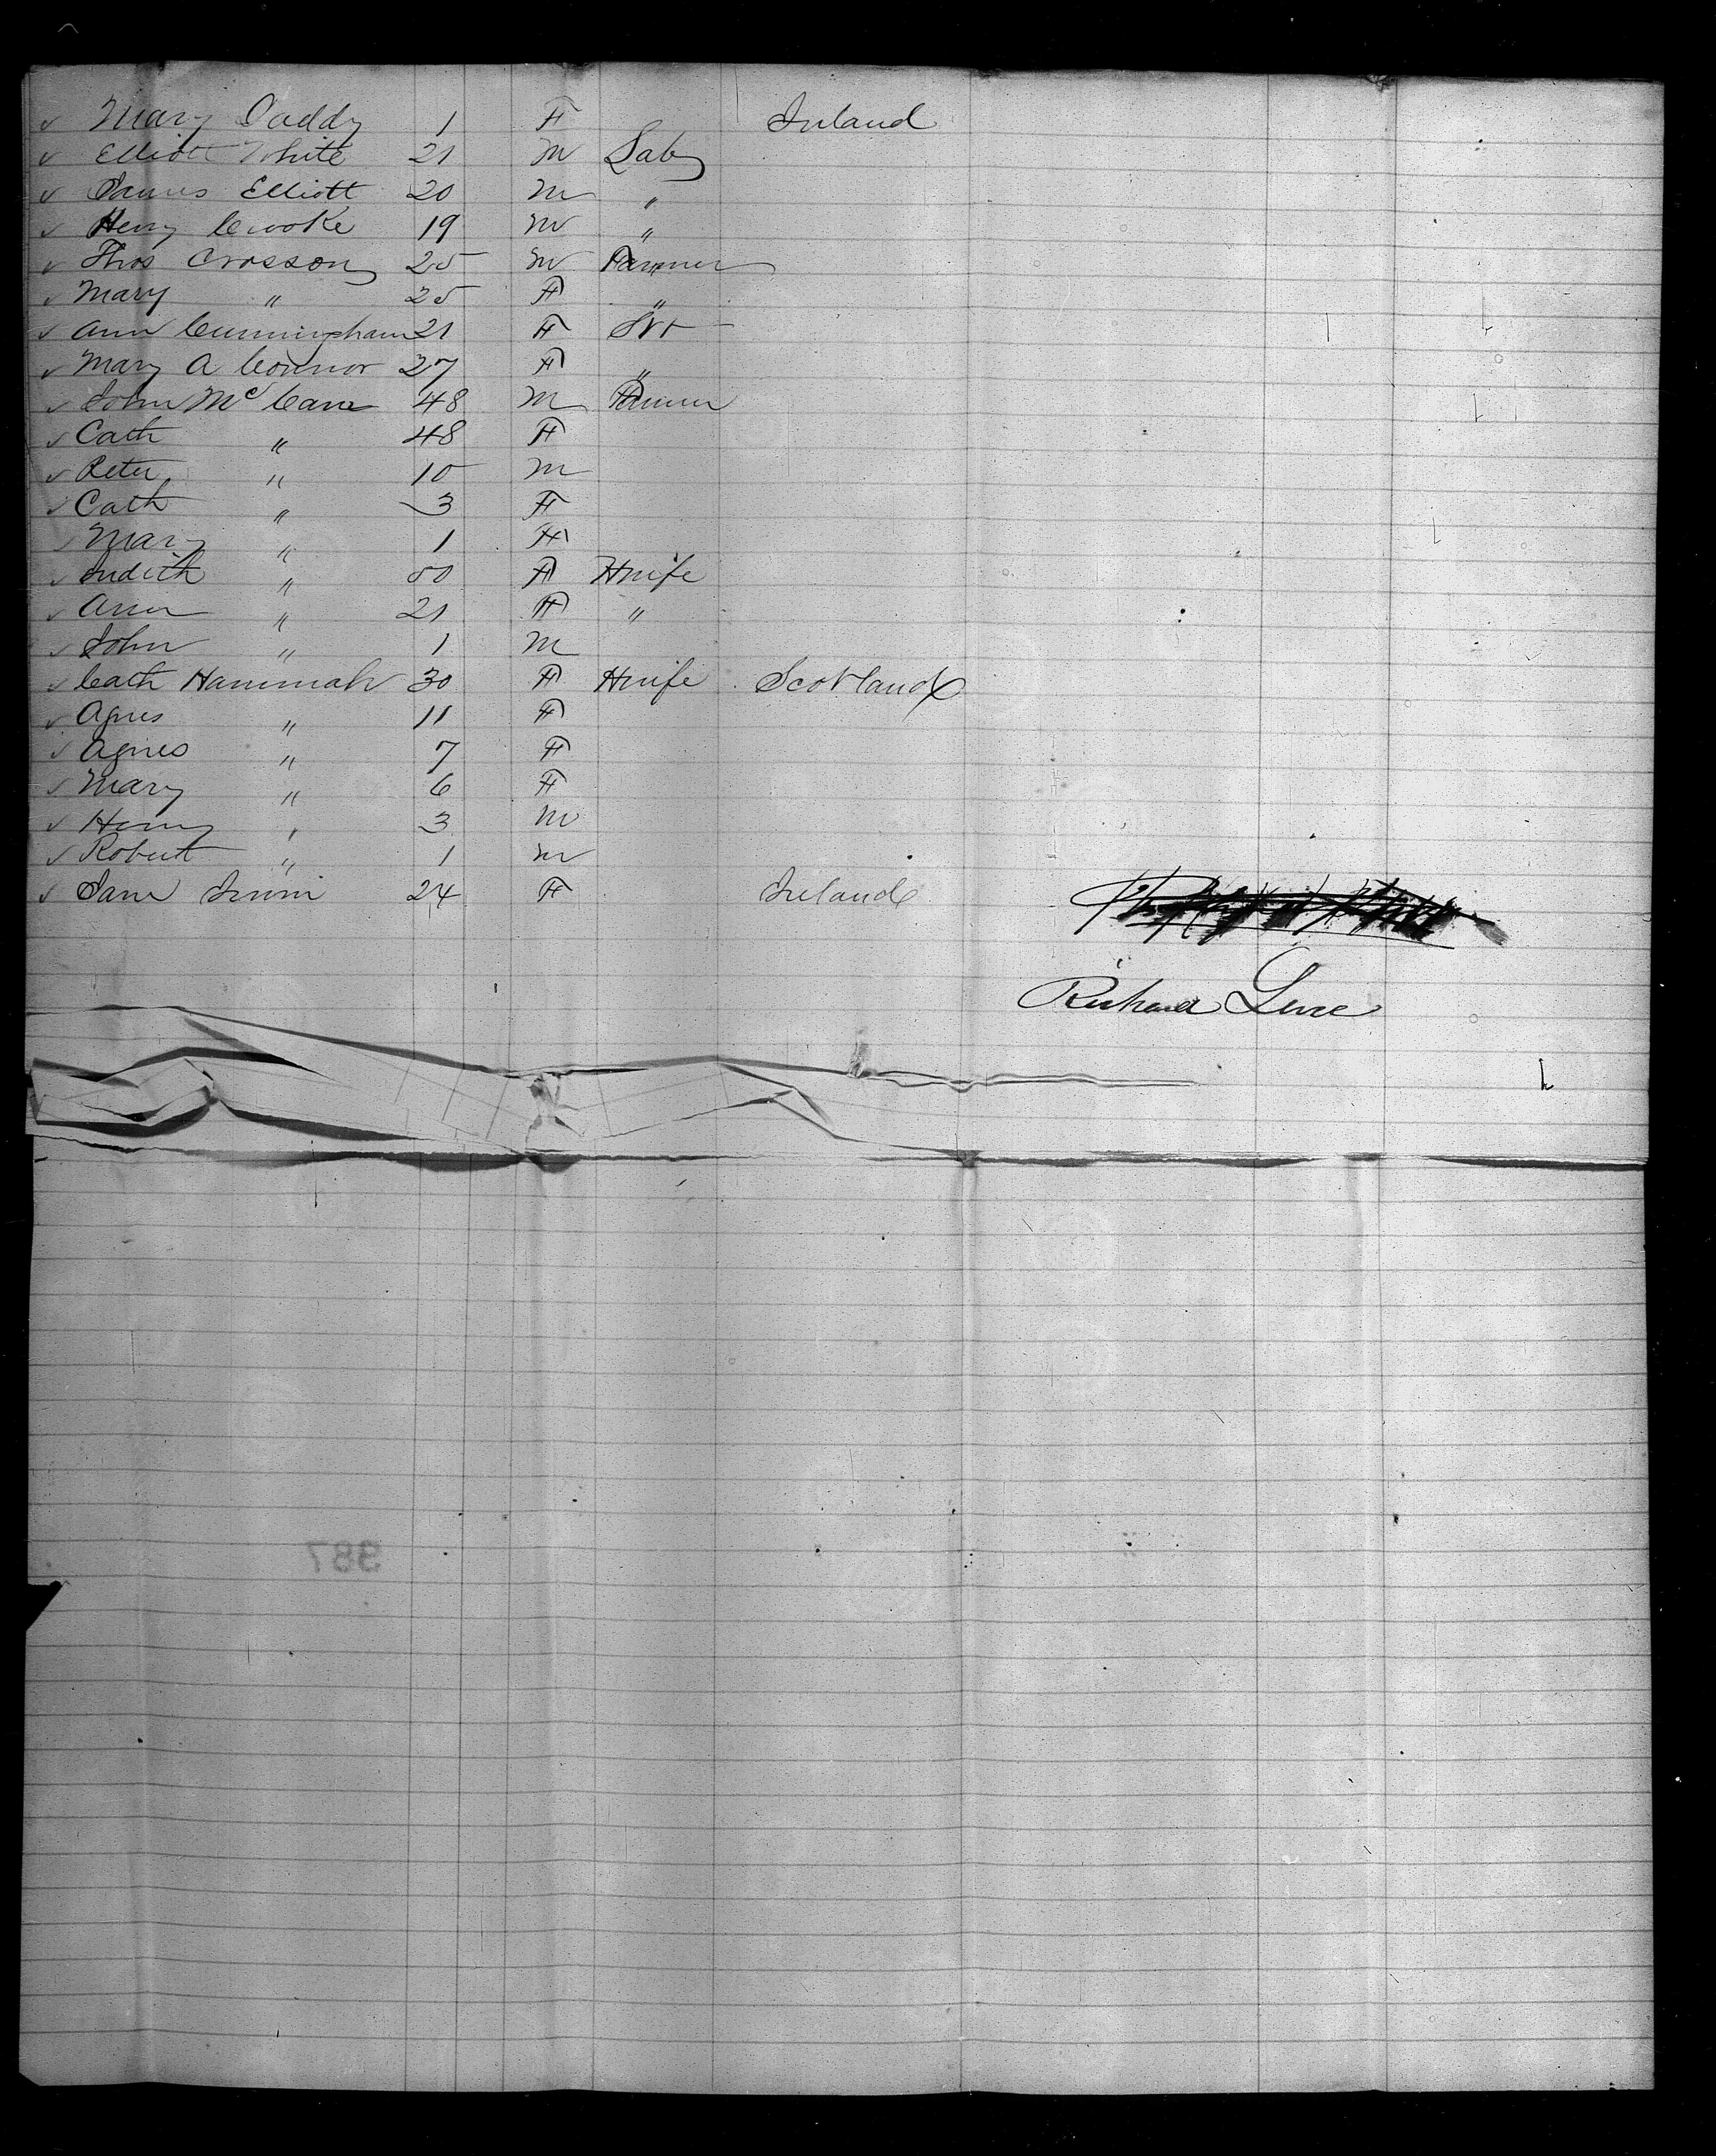 Mary Daddy 1 F Ireland
Elliott White 21 M Laby
James Elliott 20 M "
Henry Crooke 19 M "
Thos Crosson 25 M Farmer
Mary " 25 F "
Ann Cunningham 21 F Svt
Mary A Connor 27 F "
John McCann 48 M Farmer
Cath " 48 F
Peter " 10 M
Cath " 3 F
Mary " 1 F
Judith " 50 F Hwife
Ann " 21 F "
John " 1 M
Cath Hannah 30 F Hwife Scotland
Agnes " 11 F
Agnes " 7 F
Mary " 6 F
Henry " 3 M
Robert " 1 M
Jane Irwin 24 F Ireland
Richard Luce
387